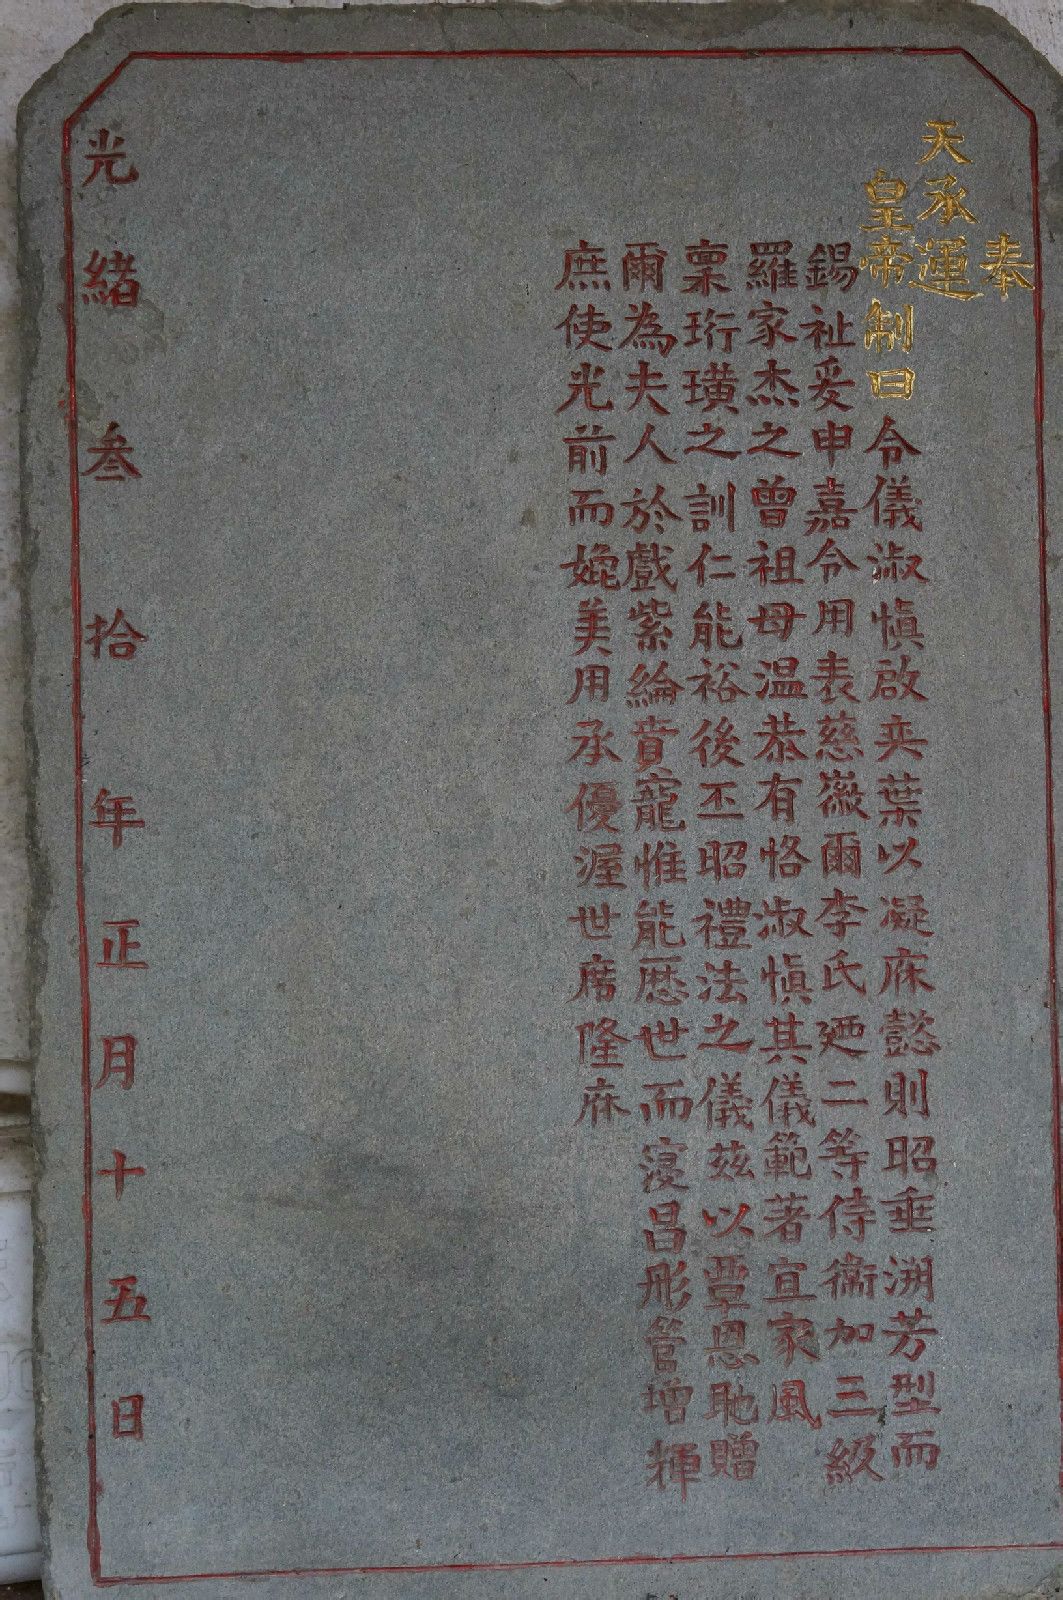 奉
天承運
皇帝制曰令儀淑慎啟奕葉以凝庥懿則昭垂溯芳型而
錫祉爰申嘉令用表慈徽爾李氏廼二等侍衞加三級
羅家杰之曾祖母温恭有恪淑慎其儀範著宜家風
稟珩璜之訓仁能裕後丕昭禮法之儀兹以覃恩貤贈
爾為夫人於戲紫綸賁寵惟能歷世而寖昌彤管增輝
庶使光前而媲美用承優渥世席隆庥
光緒叁拾年正月十五日